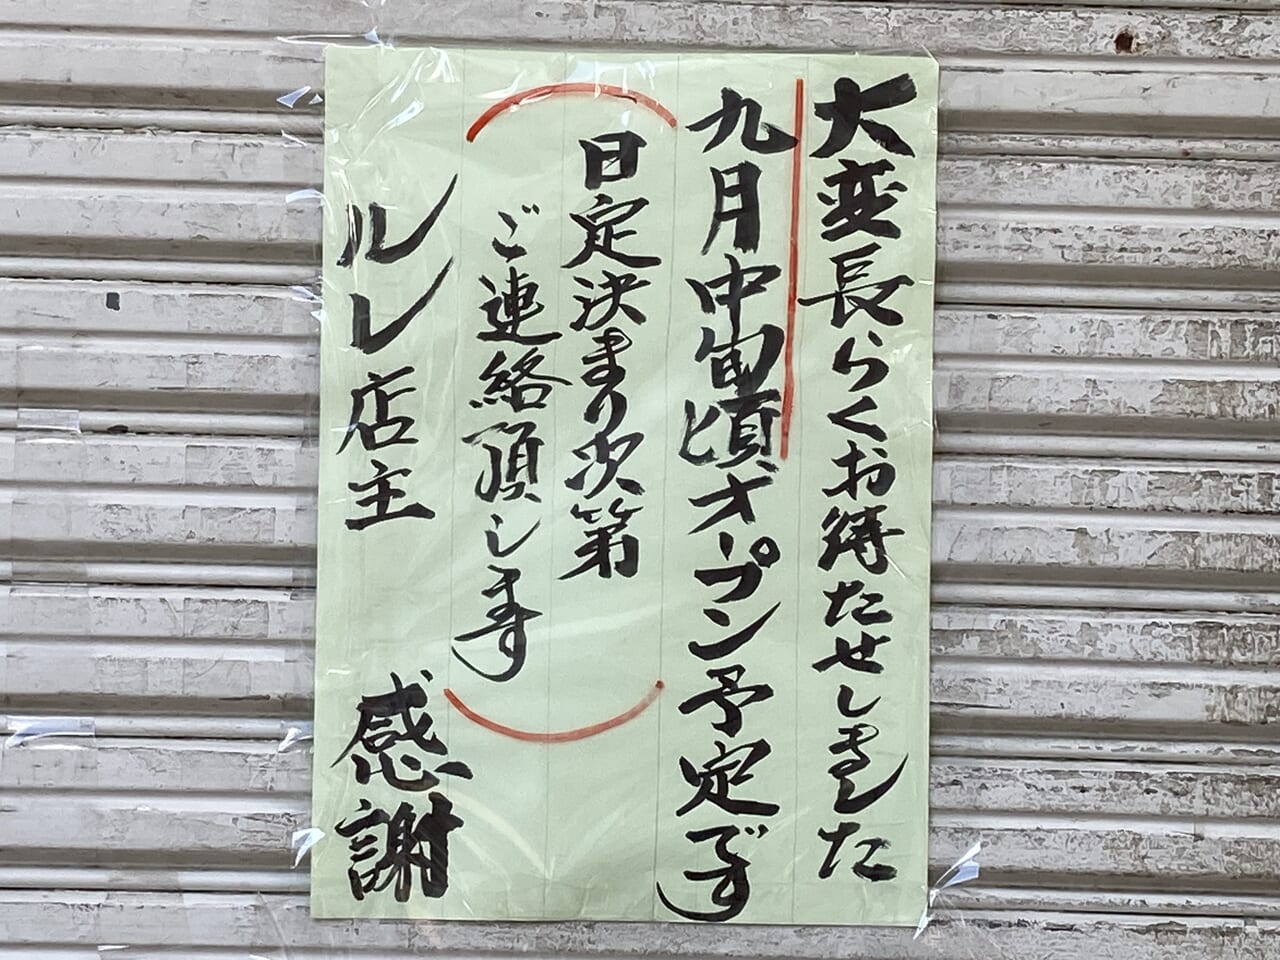 大変長らくお待たせしました
九月中旬頃オープン予定です
(日定決まり次第
ご連絡頂します)
ルレ店主 感謝